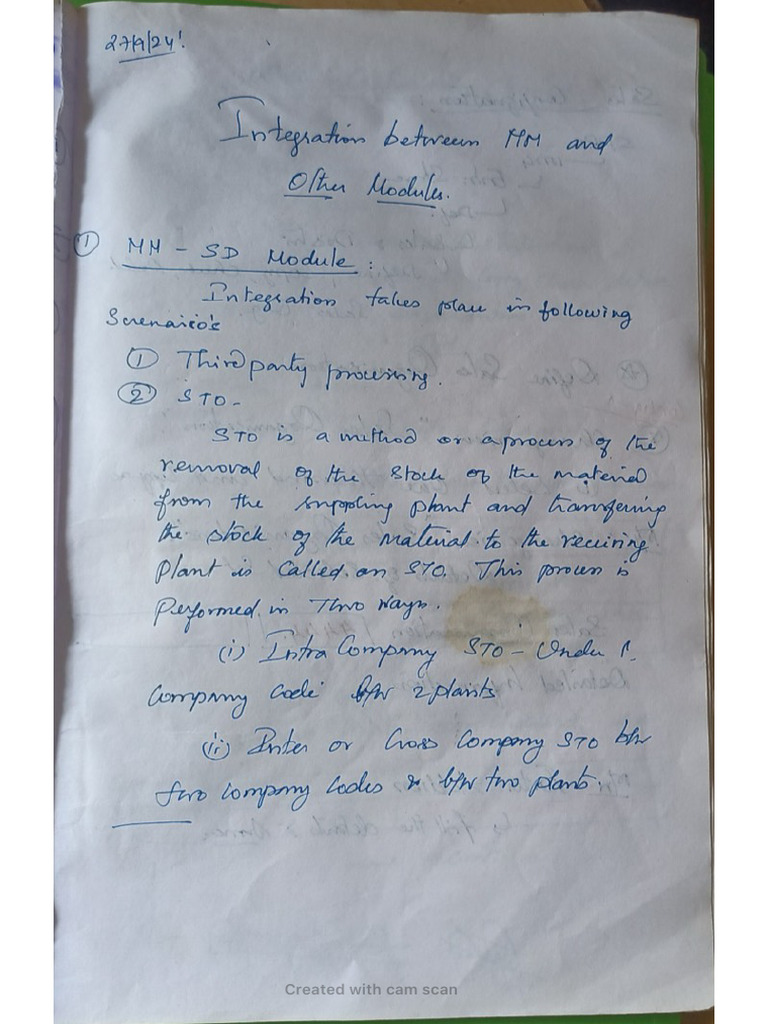 27/9/24'
Integration between MM and
Other Modules.
① MM - SD Module :
Integration takes place in following
Screnario's
① Third party processing.
② STO -
STO is a method or a process of the
removal of the stock of the material
from the suppling plant and transfering
the stock of the material to the reciving
plant is called an STO. This process is
Performed in Two ways.
(i) Intra Company STO - Under 1.
Company Code b/w 2 plants
(ii) Inter or Cross Company STO b/w
two company codes & b/w two plants.
Created with cam scan